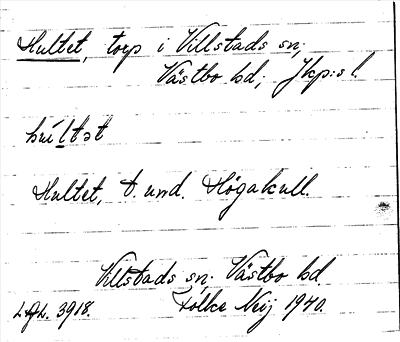 Hultet, torp i Villstads sn,
Västbo hd; Jkp:s l.
húltət
Hultet, t. und. Högakull.
Villstads sn. Västbo hd.
Folke Neij 1940.
3918.